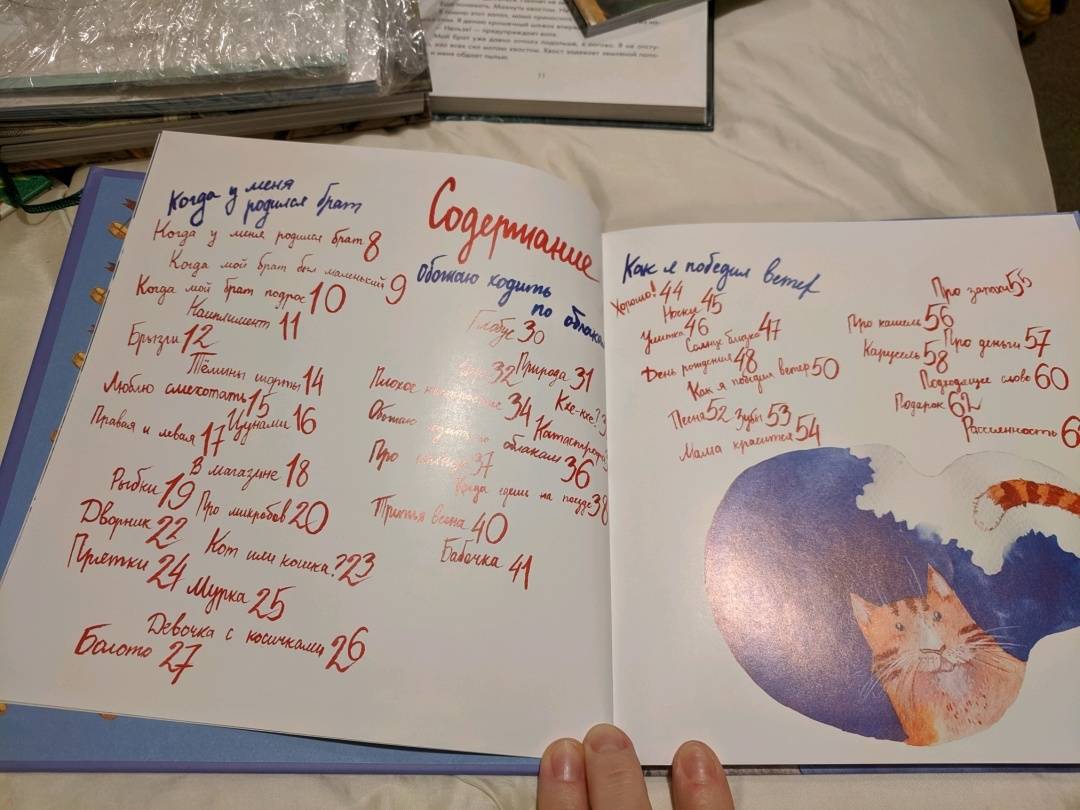 Когда у меня
родился брат
Когда у меня родился брат 8
Когда мой брат был маленький 9
Когда мой брат подрос 10
Комплимент 11
Брызги 12
Тёмины шорты 14
Люблю смехотать 15
Цунами 16
Правая и левая 17
В магазине 18
Рыбки 19
Про микробов 20
Дворник 22
Кот или кошка? 23
Прятки 24
Мурка 25
Девочка с косичками 26
Болото 27
Содержание
Обожаю ходить
по облакам
Глобус 30
Природа 31
32
Плохое настроение 34
Кхе-кхе? 3
Катастрофа
Обожаю ходить по облакам 36
Про 37
Когда едешь на поезде 38
Третья весна 40
Бабочка 41
Как я победил ветер
Хорошо! 44
Носки 45
Улитка 46
Солнце близко 47
День рождения 48
Как я победил ветер 50
Песня 52
Зубы 53
Мама красится 54
Про запахи 55
Про кашель 56
Про деньги 57
Карусель 58
Подходящее слово 60
Подарок 62
Рассеянность 6
11